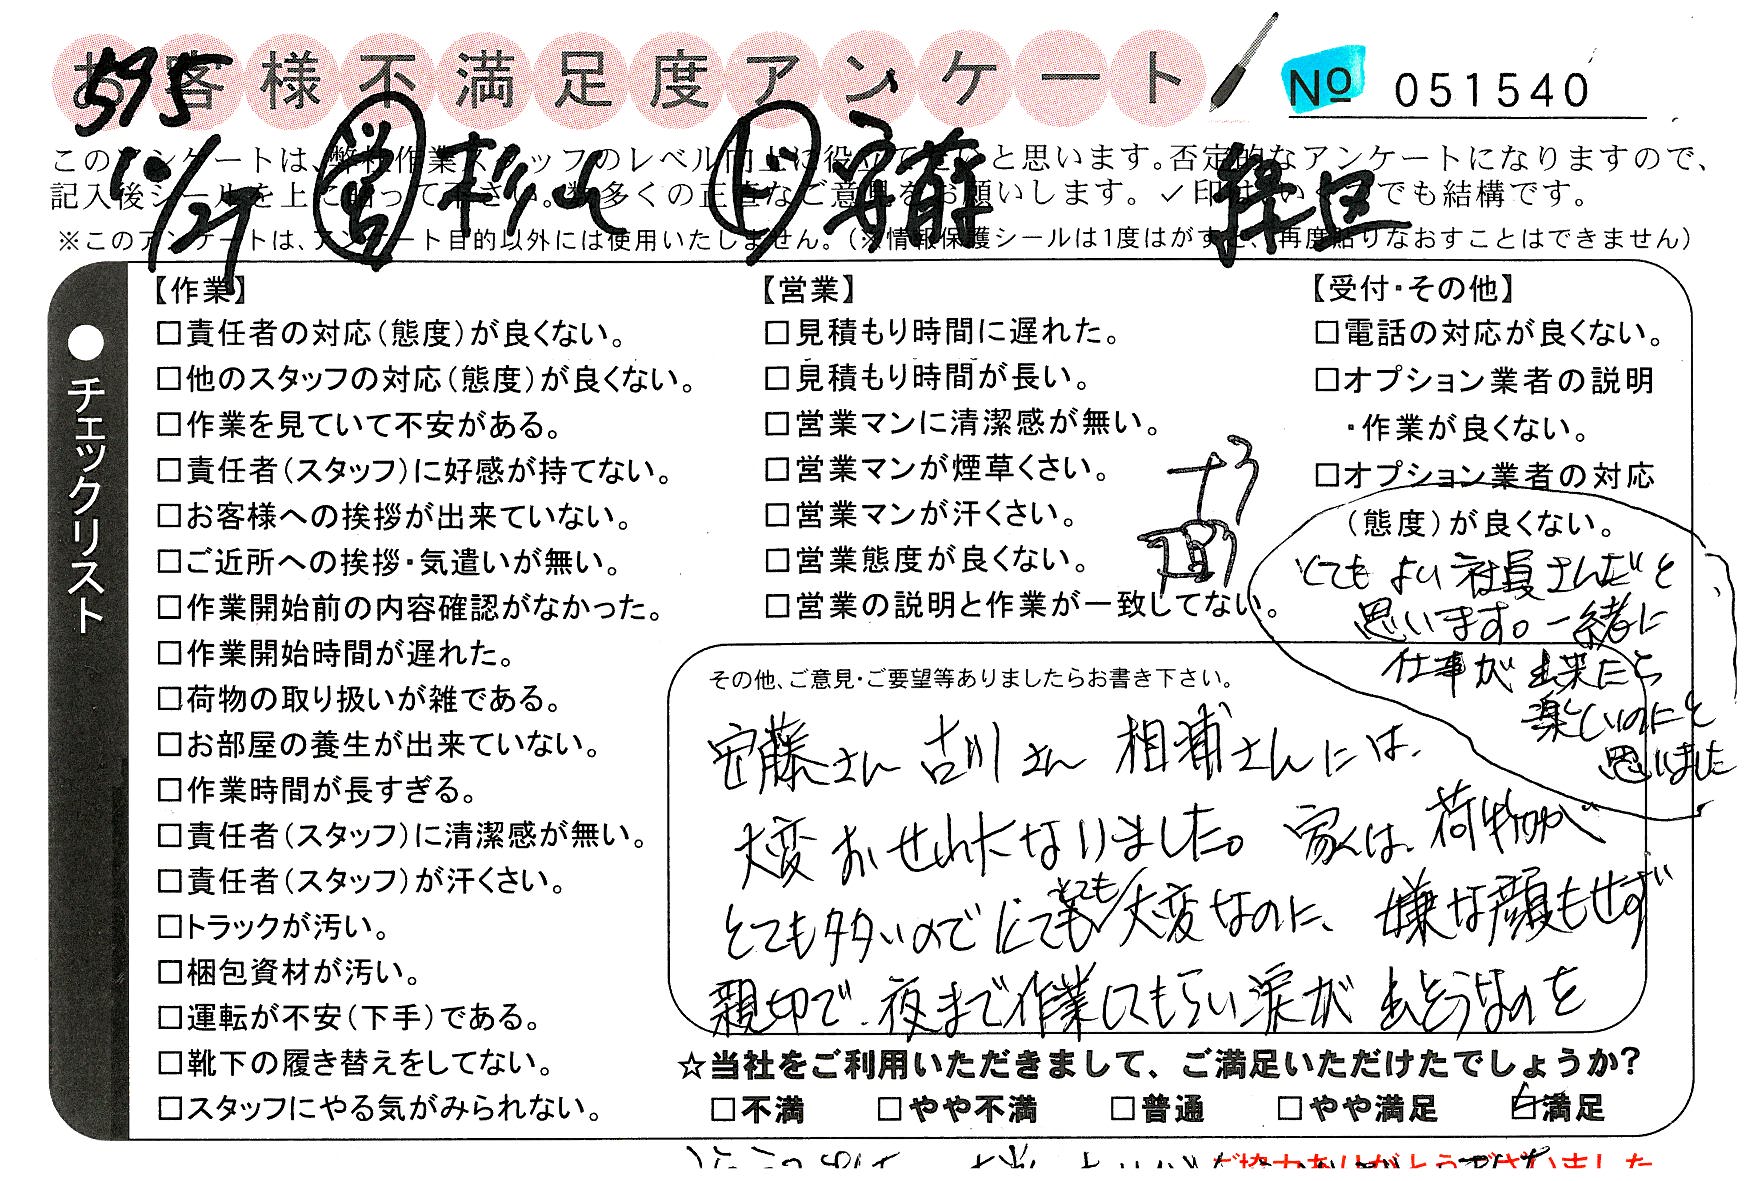 お客様不満足度アンケート
No 051540
595
12/27 営 杉山 上 安藤 緑区
このアンケートは、弊社作業スタッフのレベル向上に役立てたいと思います。否定的なアンケートになりますので、
記入後シールを上に貼って下さい。数多くの正直なご意見をお願いします。✓印はいくつでも結構です。
※このアンケートは、アンケート目的以外には使用いたしません。(※情報保護シールは1度はがすと、再度貼りなおすことはできません)
●チェックリスト
【作業】
□責任者の対応(態度)が良くない。
□他のスタッフの対応(態度)が良くない。
□作業を見ていて不安がある。
□責任者(スタッフ)に好感が持てない。
□お客様への挨拶が出来ていない。
□ご近所への挨拶・気遣いが無い。
□作業開始前の内容確認がなかった。
□作業開始時間が遅れた。
□荷物の取り扱いが雑である。
□お部屋の養生が出来ていない。
□作業時間が長すぎる。
□責任者(スタッフ)に清潔感が無い。
□責任者(スタッフ)が汗くさい。
□トラックが汚い。
□梱包資材が汚い。
□運転が不安(下手)である。
□靴下の履き替えをしてない。
□スタッフにやる気がみられない。
【営業】
□見積もり時間に遅れた。
□見積もり時間が長い。
□営業マンに清潔感が無い。
□営業マンが煙草くさい。
□営業マンが汗くさい。
□営業態度が良くない。
□営業の説明と作業が一致してない。
【受付・その他】
□電話の対応が良くない。
□オプション業者の説明
・作業が良くない。
□オプション業者の対応
(態度)が良くない。
とてもよい社員さんだと
思います。一緒に
仕事が出来たら
楽しいのにと
思いました
その他、ご意見・ご要望等ありましたらお書き下さい。
安藤さん 古川さん 相浦さんには、
大変おせわになりました。家は、荷物が
とても多いので とても大変なのに、嫌な顔もせず
親切で、夜まで作業してもらい涙が出そうなのを
☆当社をご利用いただきまして、ご満足いただけたでしょうか?
□不満 □やや不満 □普通 □やや満足 ☑満足
ご協力ありがとうございました